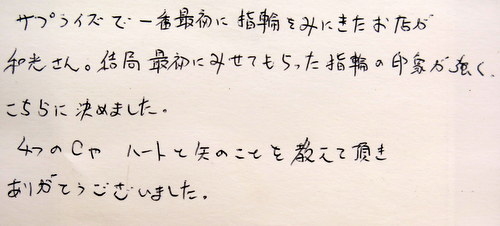 サプライズで一番最初に指輪をみにきたお店が
和光さん。結局最初にみせてもらった指輪の印象が強く、
こちらに決めました。
4つのCや ハートと矢のことを教えて頂き
ありがとうございました。